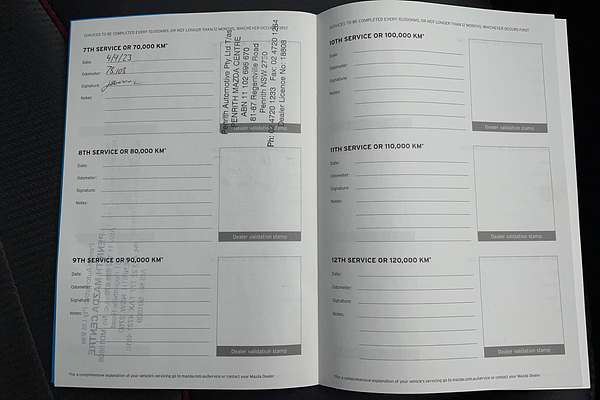 SERVICES TO BE COMPLETED EVERY 10,000KMS, OR NOT LONGER THAN 12 MONTHS, WHICHEVER OCCURS FIRST
7TH SERVICE OR 70,000 KM*
Date: 4/4/23
Odometer:
Signature:
Notes:
Penrith Automotive Pty Ltd T/as
PENRITH MAZDA CENTRE
ABN 11 102 696 670
81-87 Regentville Road
Penrith NSW 2750
Ph: 02 4720 1233 Fax: 02 4720 1264
Dealer Licence No: 18808
Dealer validation stamp
8TH SERVICE OR 80,000 KM*
Date:
Odometer:
Signature:
Notes:
Dealer validation stamp
9TH SERVICE OR 90,000 KM*
Date:
Odometer:
Signature:
Notes:
Dealer validation stamp
*For a comprehensive explanation of your vehicle's servicing go to mazda.com.au/service or contact your Mazda Dealer
SERVICES TO BE COMPLETED EVERY 10,000KMS, OR NOT LONGER THAN 12 MONTHS, WHICHEVER OCCURS FIRST
10TH SERVICE OR 100,000 KM*
Date:
Odometer:
Signature:
Notes:
Dealer validation stamp
11TH SERVICE OR 110,000 KM*
Date:
Odometer:
Signature:
Notes:
Dealer validation stamp
12TH SERVICE OR 120,000 KM*
Date:
Odometer:
Signature:
Notes:
Dealer validation stamp
*For a comprehensive explanation of your vehicle's servicing go to mazda.com.au/service or contact your Mazda Dealer